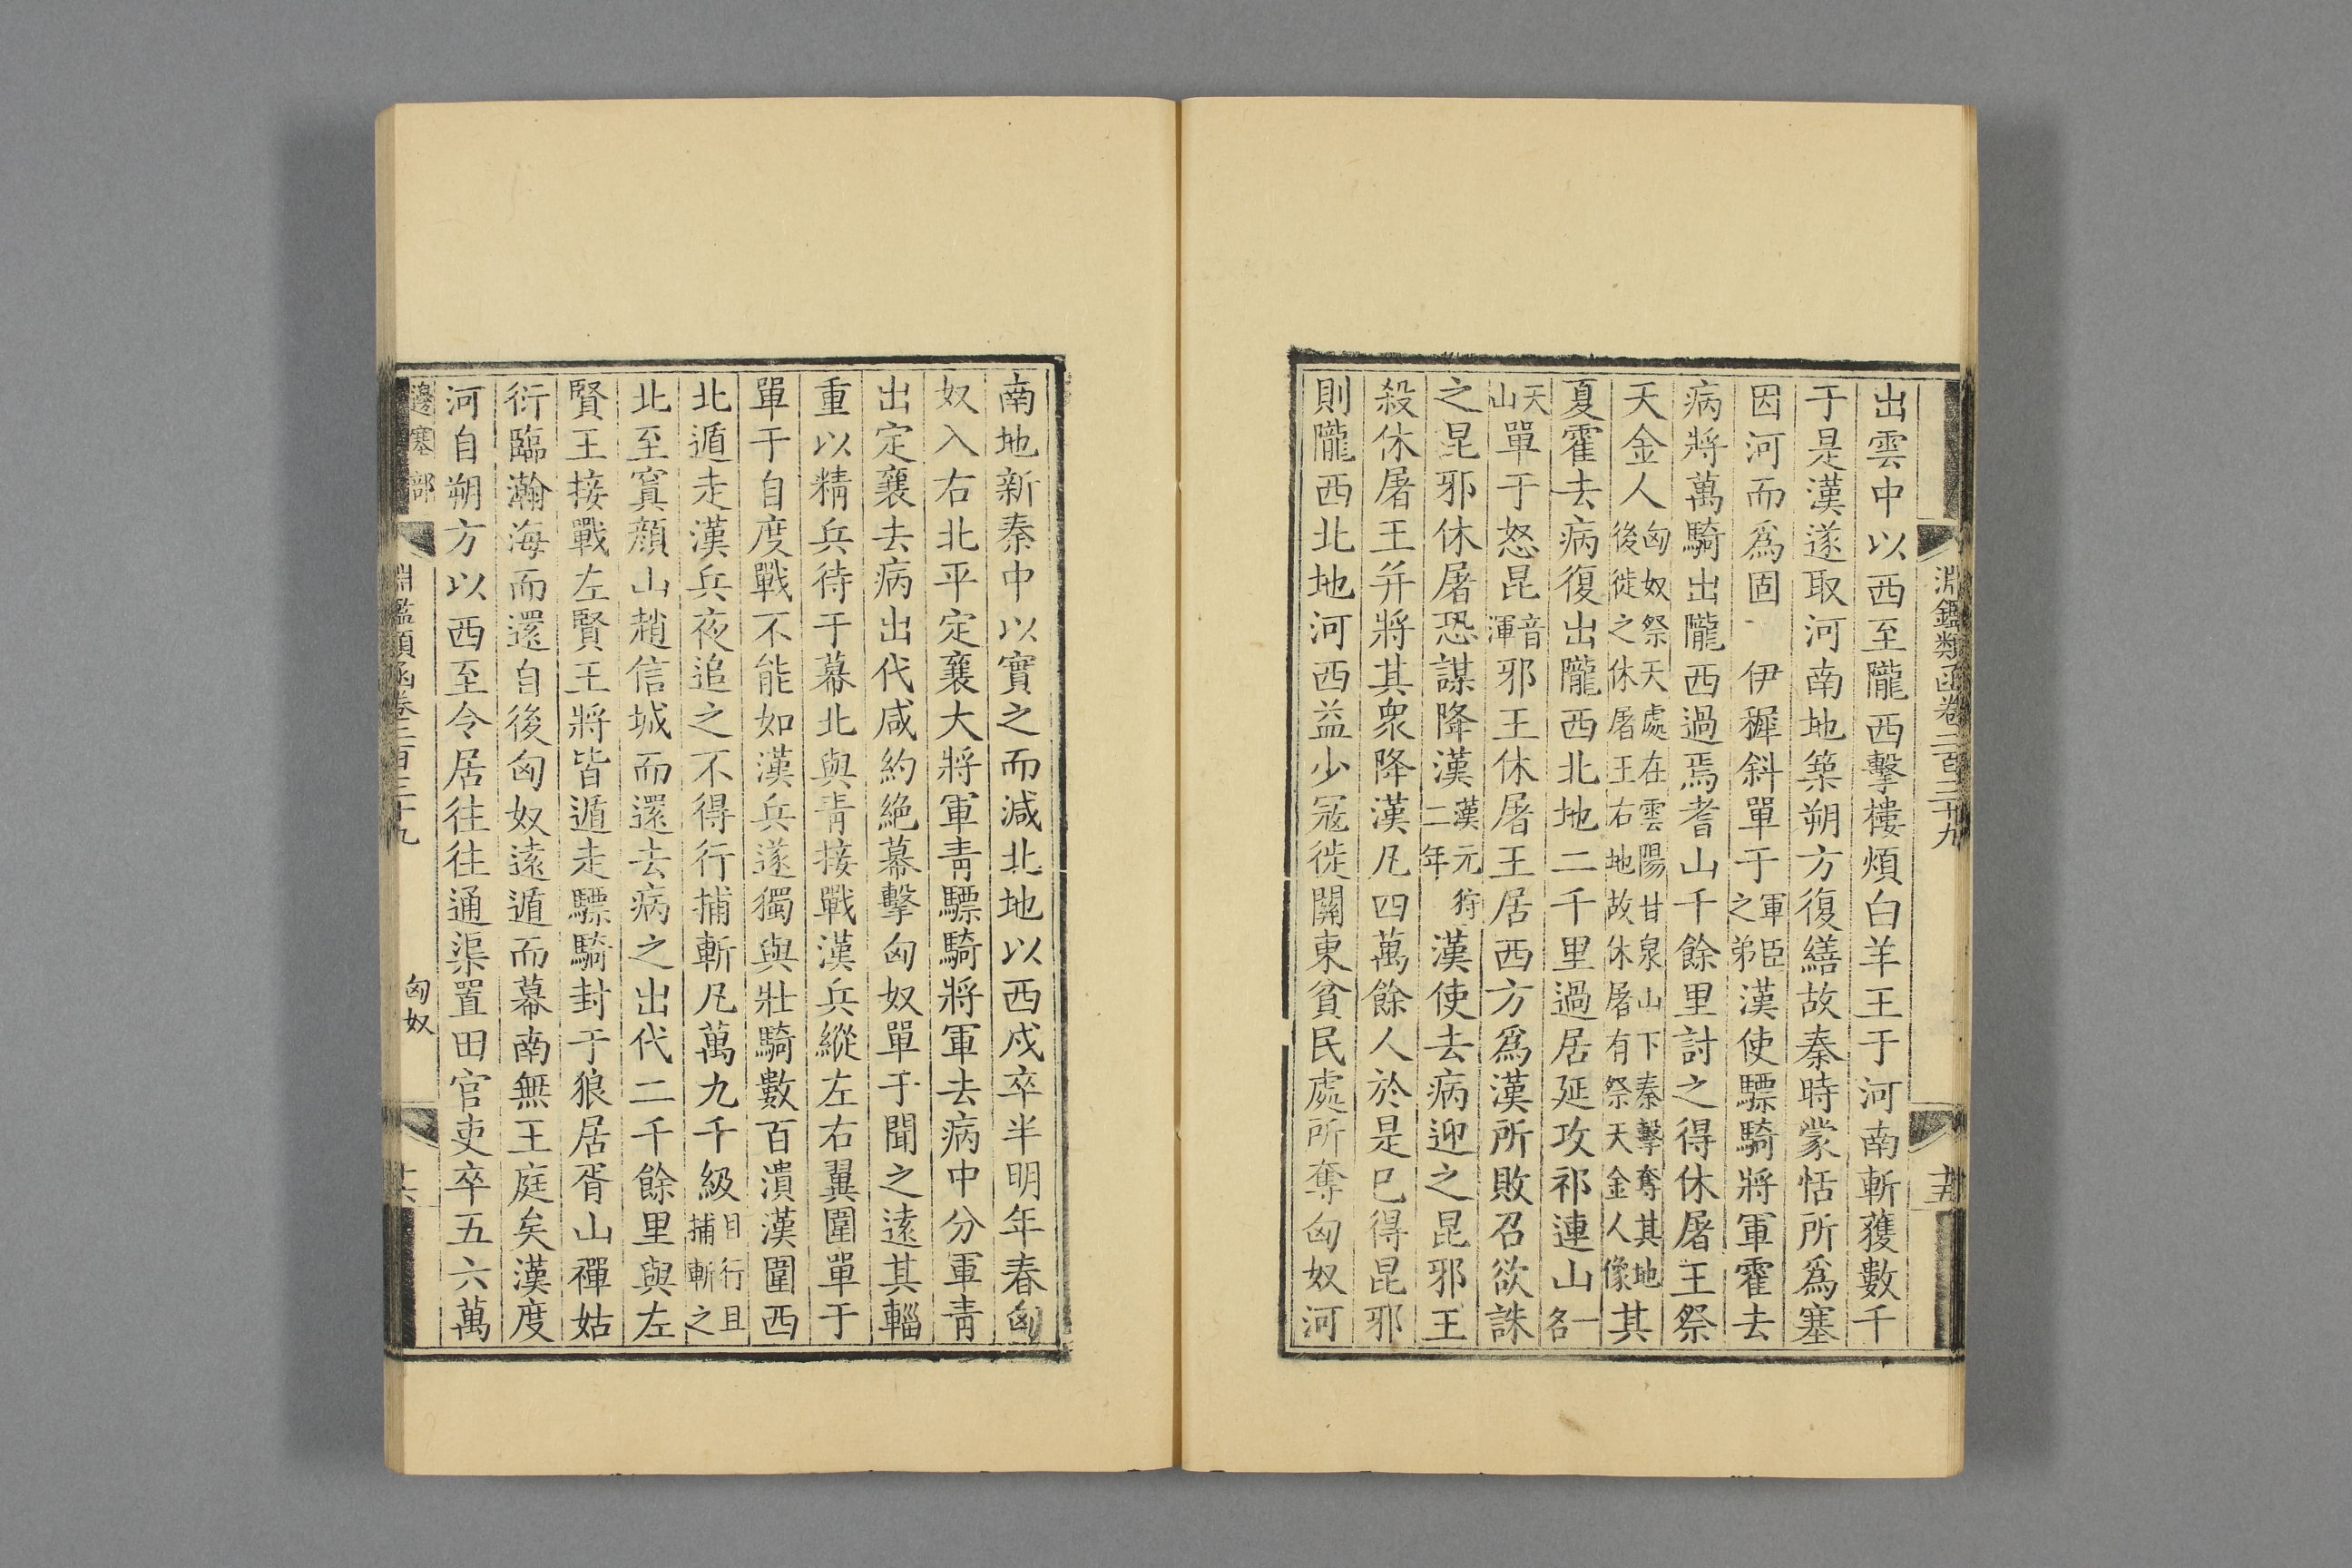 淵鑑類函卷二百三十九
十五
出雲中以西至隴西擊樓煩白羊王于河南斬獲數千
于是漢遂取河南地築朔方復繕故秦時蒙恬所爲塞
因河而爲固 伊穉斜單于軍臣之弟漢使驃騎將軍霍去
病將萬騎出隴西過焉耆山千餘里討之得休屠王祭
天金人匈奴祭天處在雲陽甘泉山下秦擊奪其地後徙之休屠王右地故休屠有祭天金人像其
夏霍去病復出隴西北地二千里過居延攻祁連山一名
天山單于怒昆音渾邪王休屠王居西方爲漢所敗召欲誅
之昆邪休屠恐謀降漢漢元狩二年漢使去病迎之昆邪王
殺休屠王并將其衆降漢凡四萬餘人於是巳得昆邪
則隴西北地河西益少冦徙關東貧民處所奪匈奴河
南地新秦中以實之而減北地以西戍卒半明年春匈
奴入右北平定襄大將軍青驃騎將軍去病中分軍青
出定襄去病出代咸約絶幕擊匈奴單于聞之遠其輜
重以精兵待于幕北與青接戰漢兵縱左右翼圍單于
單于自度戰不能如漢兵遂獨與壯騎數百潰漢圍西
北遁走漢兵夜追之不得行捕斬凡萬九千級且行且捕斬之
北至窴顏山趙信城而還去病之出代二千餘里與左
賢王接戰左賢王將皆遁走驃騎封于狼居胥山禪姑
衍臨瀚海而還自後匈奴遠遁而幕南無王庭矣漢度
河自朔方以西至令居往往通渠置田官吏卒五六萬
邊塞部
淵鑑類函卷二百三十九
匈奴
十六